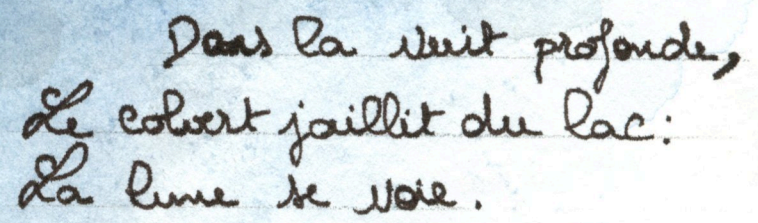 Dans la nuit profonde,
Le colvert jaillit du lac:
La lune se noie.